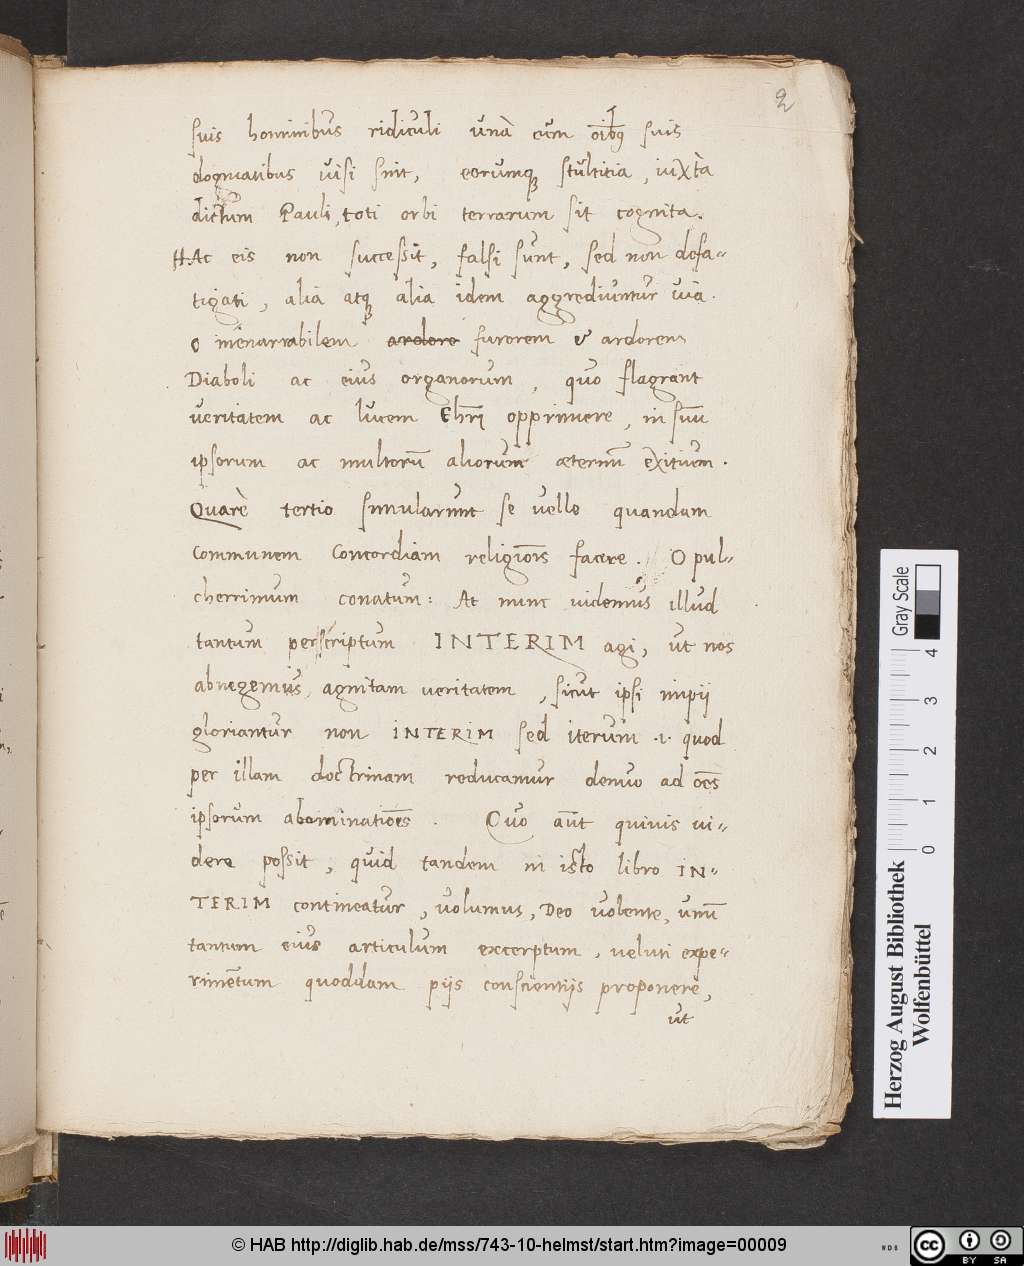 2
suis hominibus ridiculi unà cum oībꝰ suis
dogmatibus visi sint, eorumq̧ stultitia, iuxtà
dictum Pauli, toti orbi terrarum sit cognita.
HAc eis non successit, falsi sunt, sed non defa-
tigati, alia atq̧ alia idem aggrediuntur via.
O inenarrabilem ardore furorem & ardorem
Diaboli ac eius organorum, quo flagrant
veritatem ac lucem Chr̄i opprimere, in suū
ipsorum ac multorū aliorum æternū exitium.
Quarè tertio simularunt se velle quandam
communem Concordiam religiōis facere. O pul-
cherrimum conatum: At nunc videmus illud
tantum perscriptum INTERIM agi, ut nos
abnegemus, agnitam veritatem, sicut ipsi impii
gloriantur non INTERIM sed iterum .i. quod
per illam doctrinam reducamur denuo ad oēs
ipsorum abominatiōes. Quo aūt quivis vi-
dere possit, quid tandem in isto libro IN-
TERIM contineatur, volumus, Deo volente, unū
tantum eius articulum excerptum, veluti expe-
rimētum quoddam piis conscientiis proponere,
ut
Gray Scale
0 1 2 3 4
Herzog August Bibliothek
Wolfenbüttel
© HAB http://diglib.hab.de/mss/743-10-helmst/start.htm?image=00009
cc BY SA